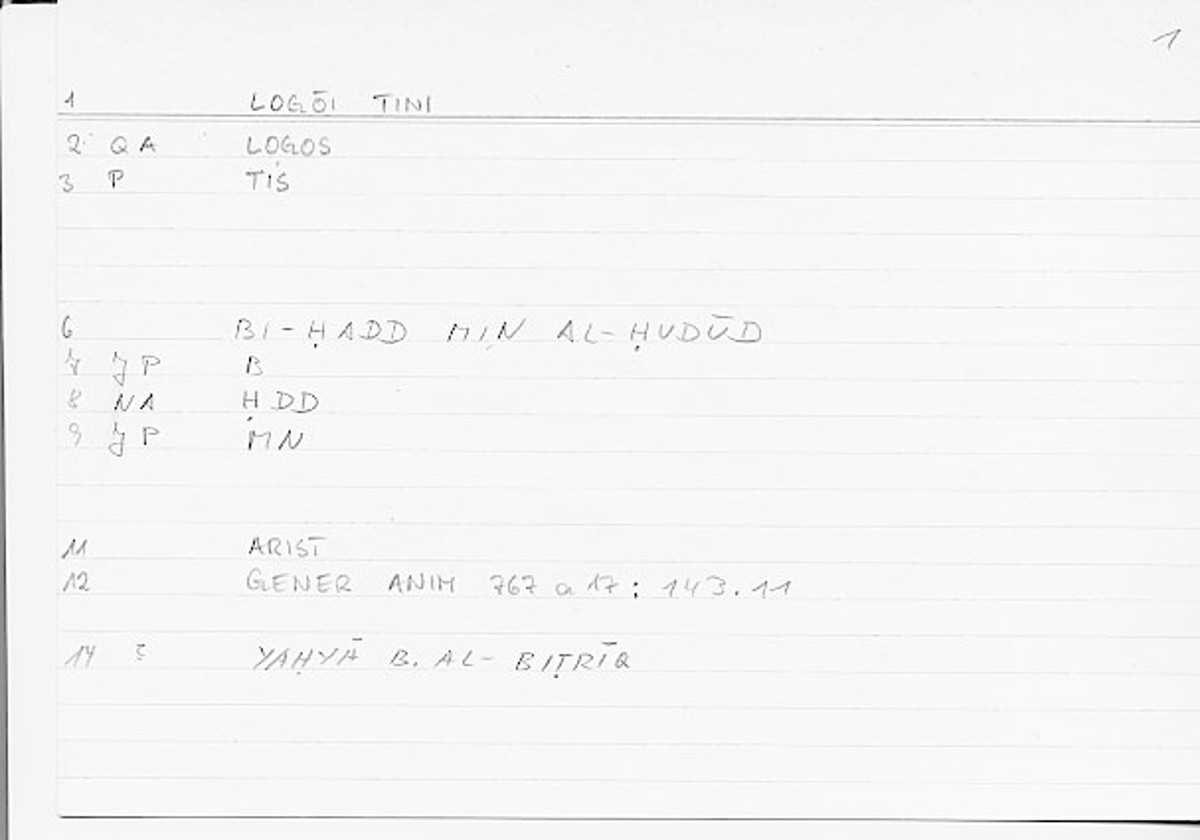 1
1 LOGŌI TINI
2 QA LOGOS
3 P TIS
6 BI-ḤADD MIN AL-ḤUDŪD
7 JP B
8 NA ḤDD
9 JP MN
11 ARIST
12 GENER ANIM 767 a 17 : 143.11
14 YAḤYĀ B. AL-BIṬRĪQ